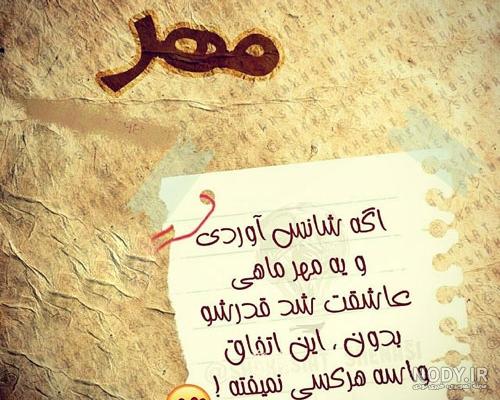 مهر
اگه شانس آوردی
و یه مهر ماهی
عاشقت شد قدرشو
بدون ، این اتفاق
واسه هرکسی نمیفته !
WODY.IR